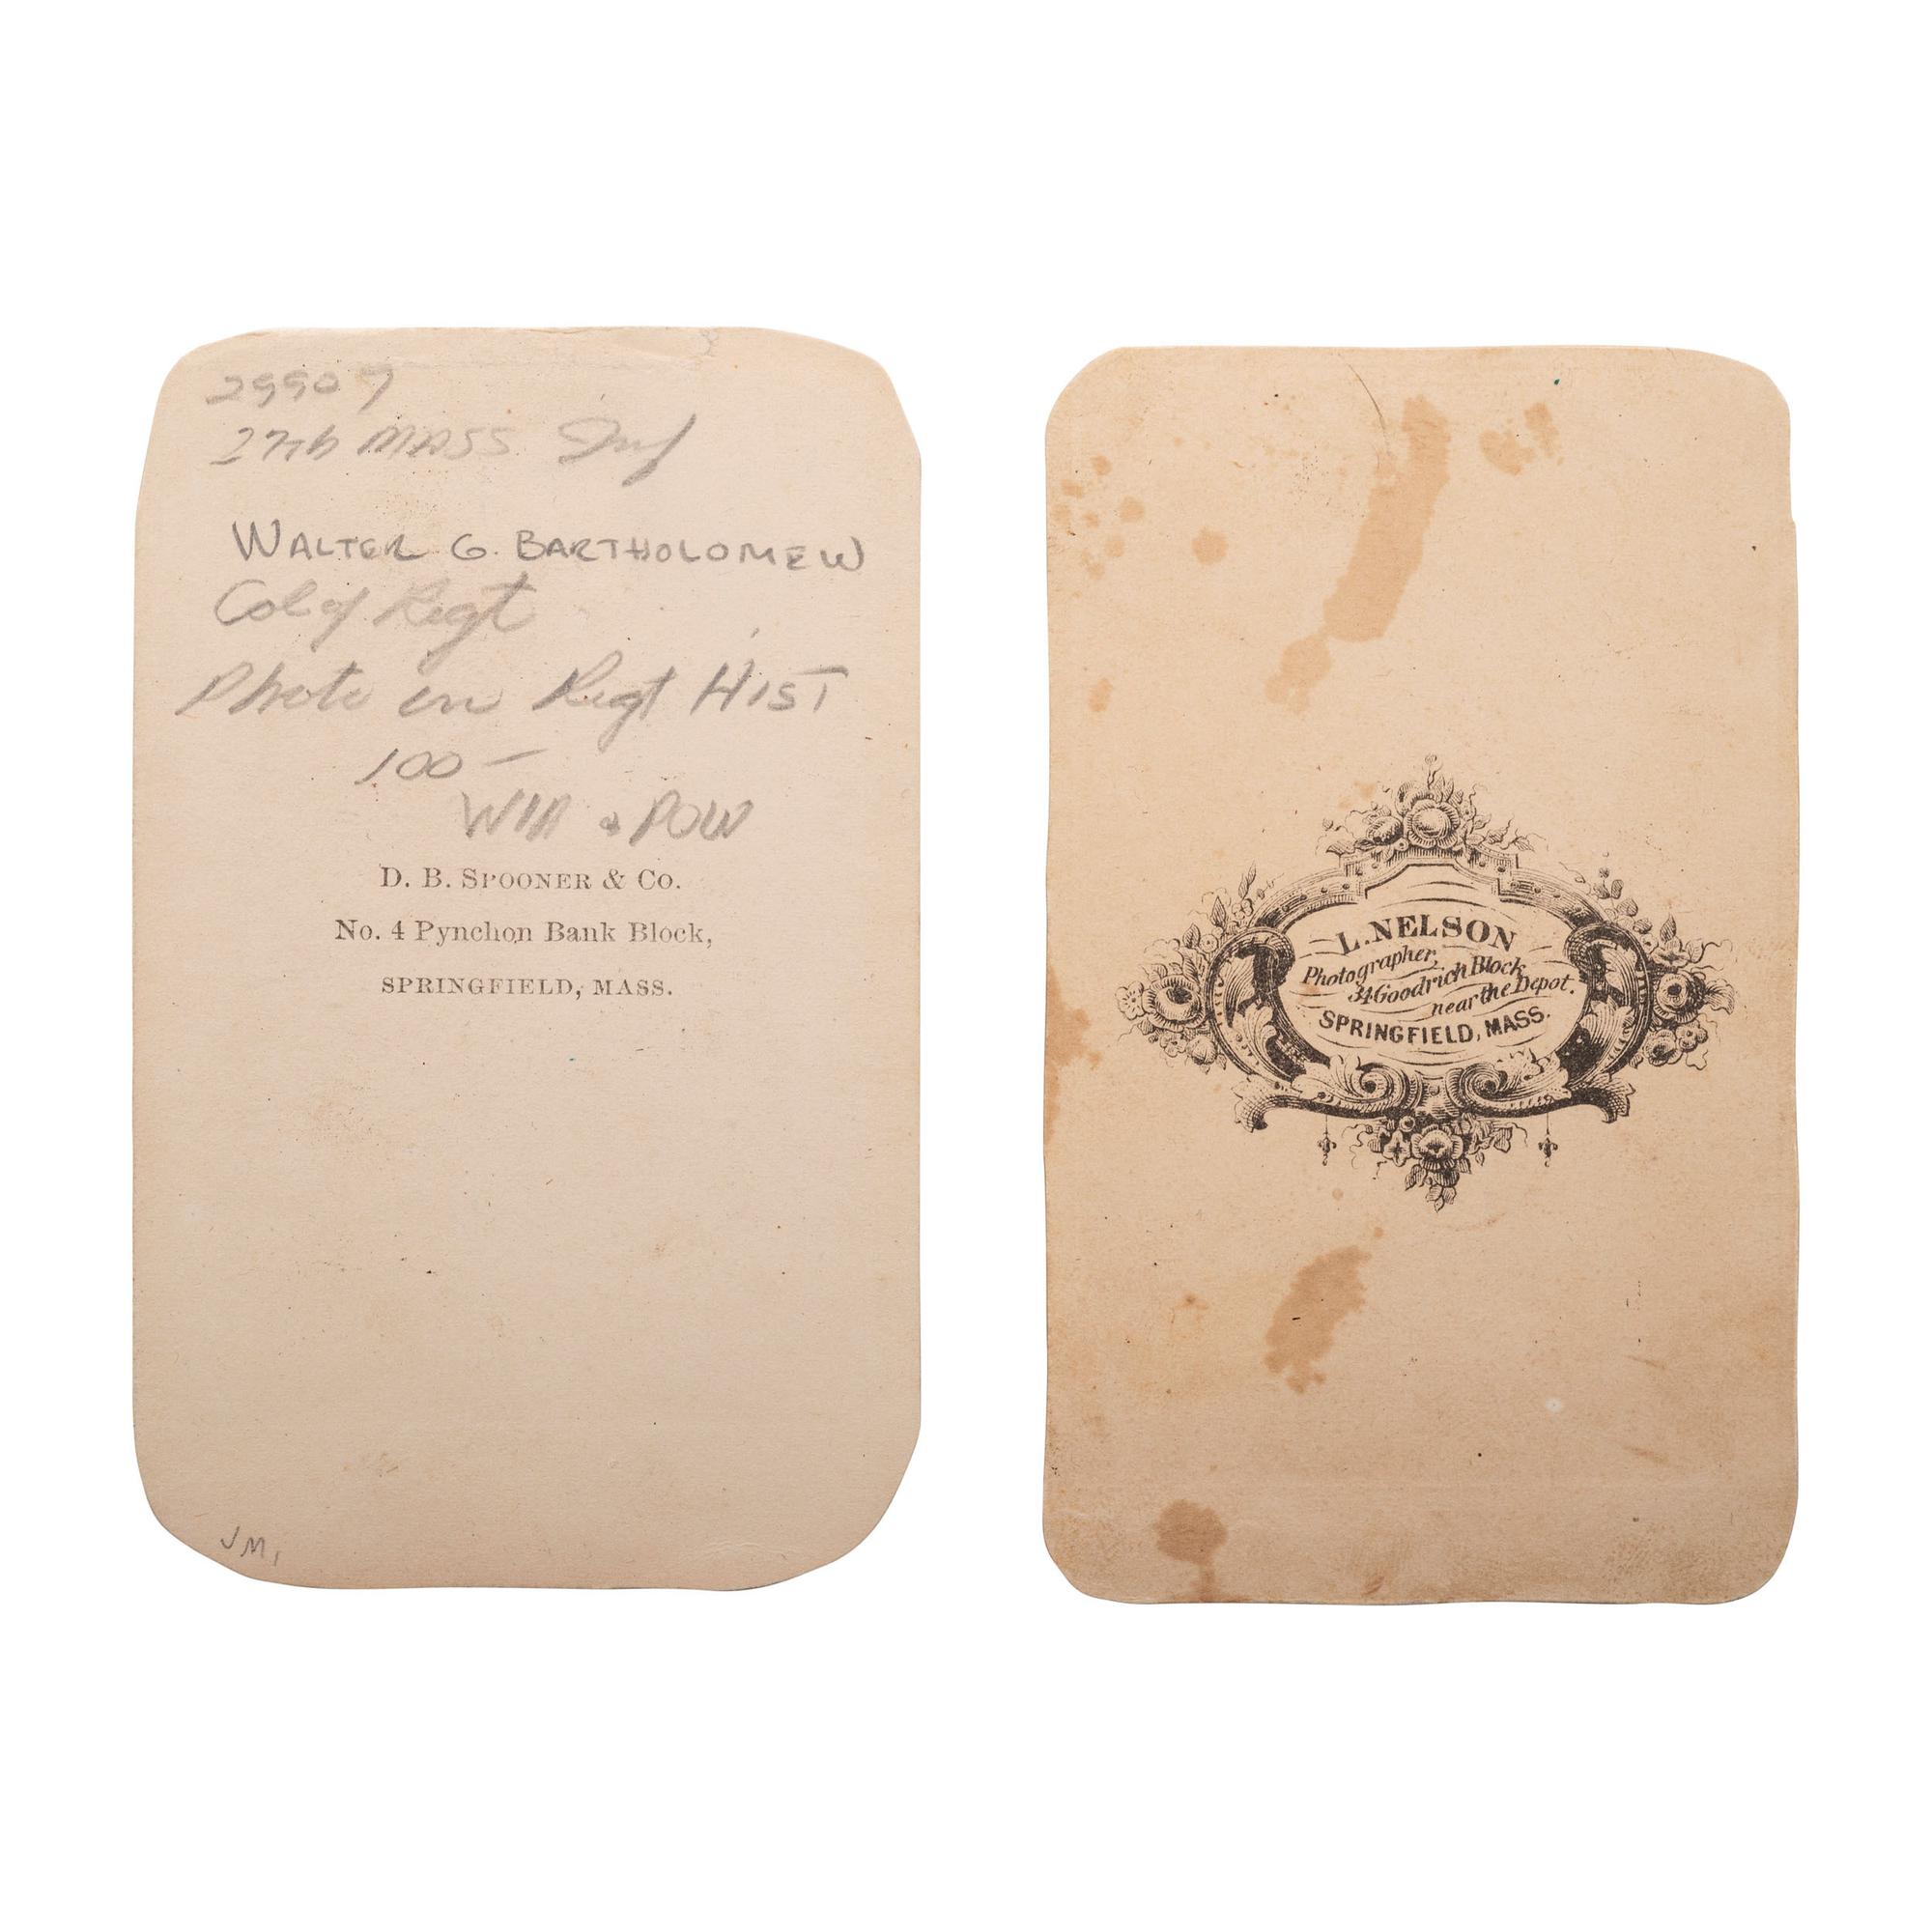 29907
27th MASS Inf
WALTER G. BARTHOLOMEW
Col of Regt
Photo in Regt HIST
100 —
WIA & POW
D. B. SPOONER & CO.
No. 4 Pynchon Bank Block,
SPRINGFIELD, MASS.
JM
L. NELSON
Photographer,
34 Goodrich Block
near the Depot.
SPRINGFIELD, MASS.